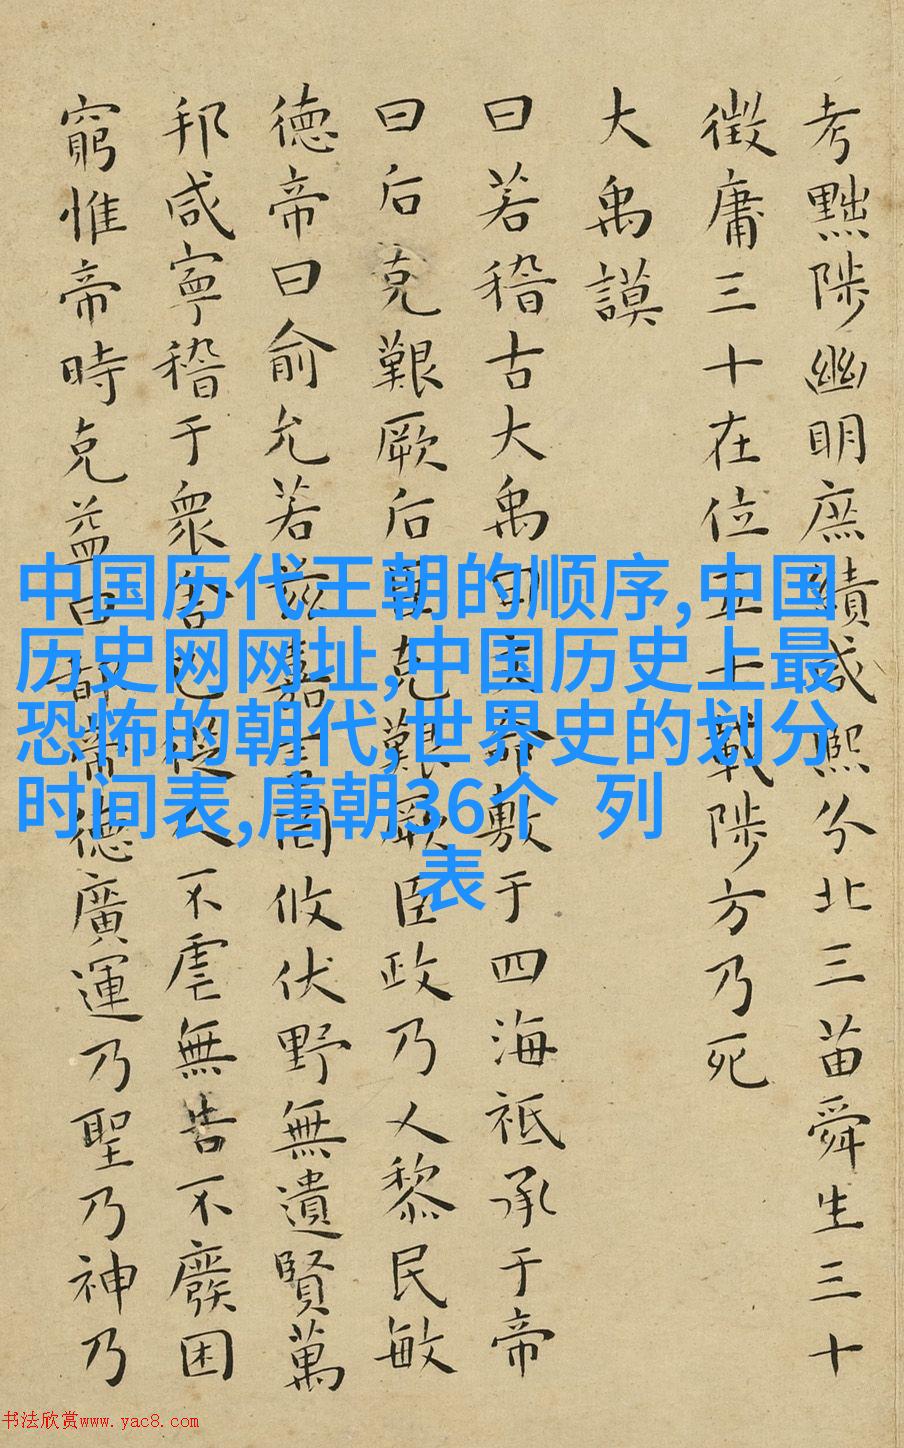 考黜陟幽明庶績咸熙分北三苗舜生三十
徵庸三十在位五十載陟方乃死
大禹謨
曰若稽古大禹曰文命敷于四海祗承于帝
曰后克艱厥后臣克艱厥臣政乃乂黎民敏
德帝曰俞允若茲嘉言罔攸伏野無遺賢萬
邦咸寧稽于衆舍己從人不虐無告不廢困
窮惟帝時克益曰都帝德廣運乃聖乃神乃
中国历代王朝的顺序,中国
历史网网址,中国历史上最
恐怖的朝代,世界史的划分
时间表,唐朝36个 列
表
书法欣赏www.yac8.com